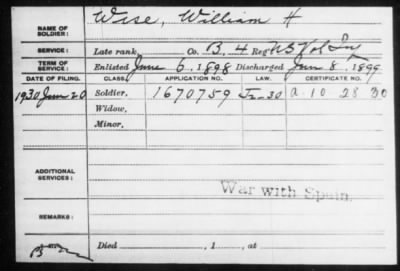 NAME OF SOLDIER: Wise, William H
SERVICE: Late rank, Co. B, 4 Reg't US Vol Inf
TERM OF SERVICE: Enlisted June 6, 1898 Discharged Jun 8, 1899
DATE OF FILING. CLASS. APPLICATION NO. LAW. CERTIFICATE NO.
1930 Jun 20 Soldier, 1670759 a 10 28 30
Widow,
Minor,
ADDITIONAL SERVICES:
War with Spain.
REMARKS:
Died , 1 , at